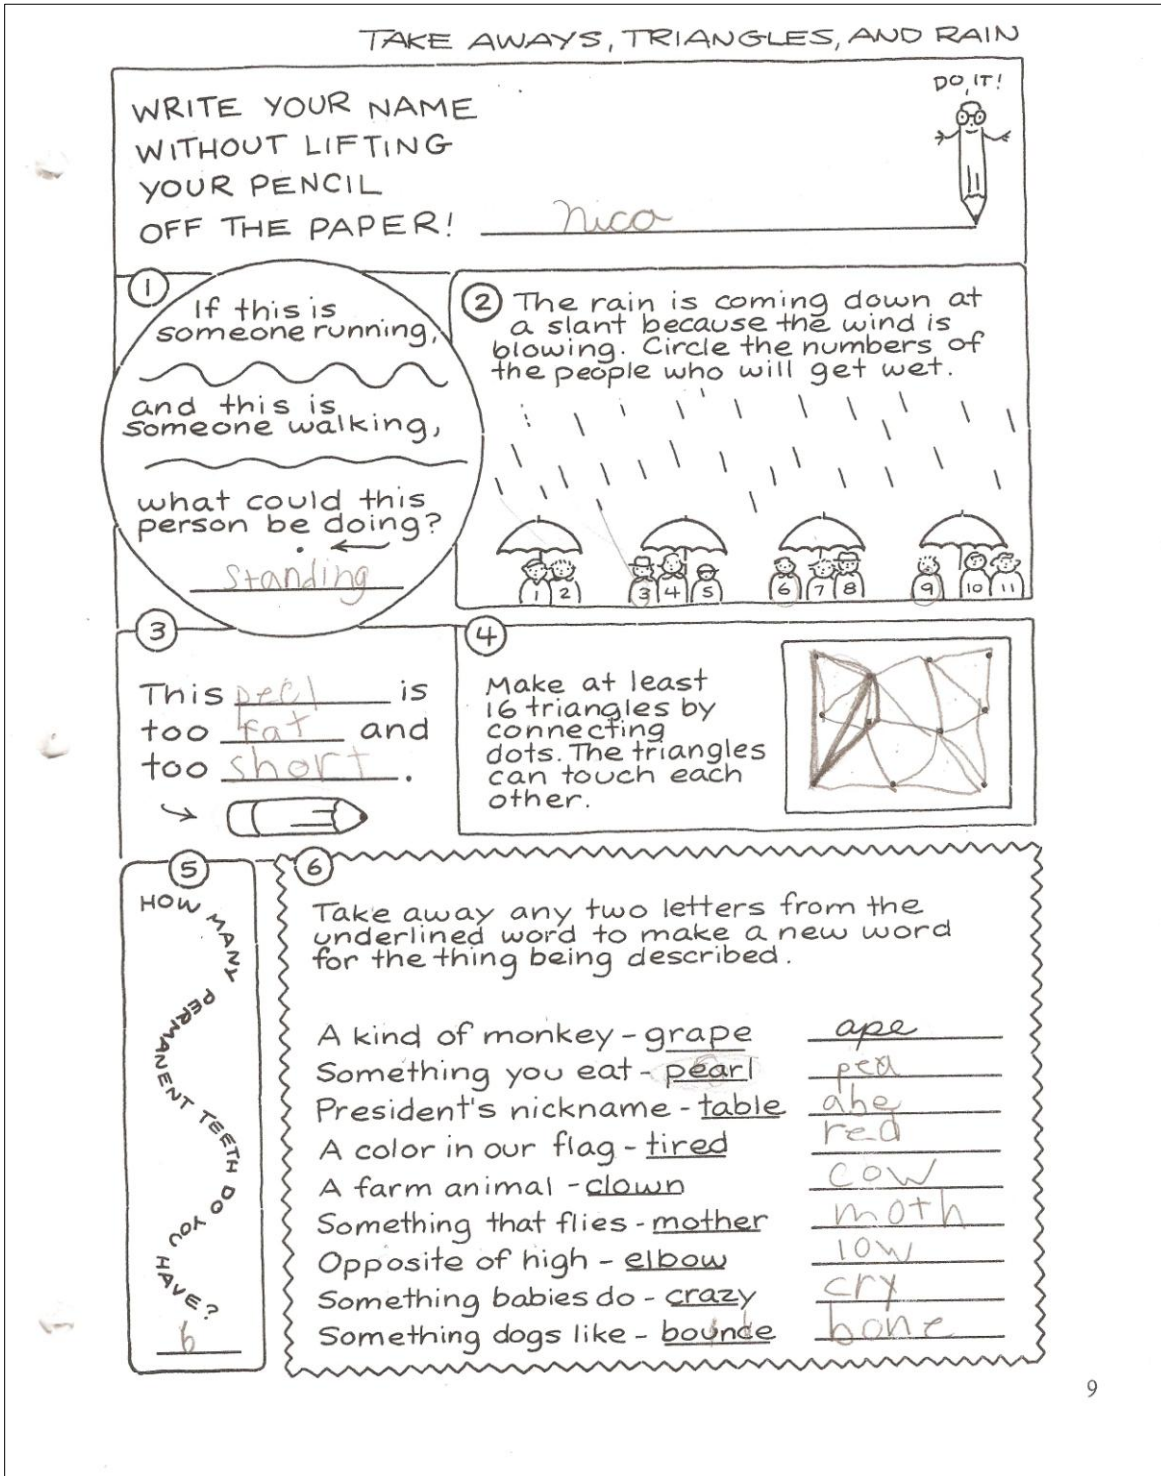 TAKE AWAYS, TRIANGLES, AND RAIN
DO IT!
WRITE YOUR NAME
WITHOUT LIFTING
YOUR PENCIL
OFF THE PAPER! nico
1
If this is
someone running,
and this is
someone walking,
what could this
person be doing?
standing
2 The rain is coming down at
a slant because the wind is
blowing. Circle the numbers of
the people who will get wet.
1 2 3 4 5 6 7 8 9 10 11
3
This pecl is
too fat and
too short.
4
Make at least
16 triangles by
connecting
dots. The triangles
can touch each
other.
5
HOW MANY PERMANENT TEETH DO YOU HAVE?
6
6
Take away any two letters from the
underlined word to make a new word
for the thing being described.
A kind of monkey - grape ape
Something you eat - pearl pea
President's nickname - table abe
A color in our flag - tired red
A farm animal - clown cow
Something that flies - mother moth
Opposite of high - elbow low
Something babies do - crazy cry
Something dogs like - bounde bone
9